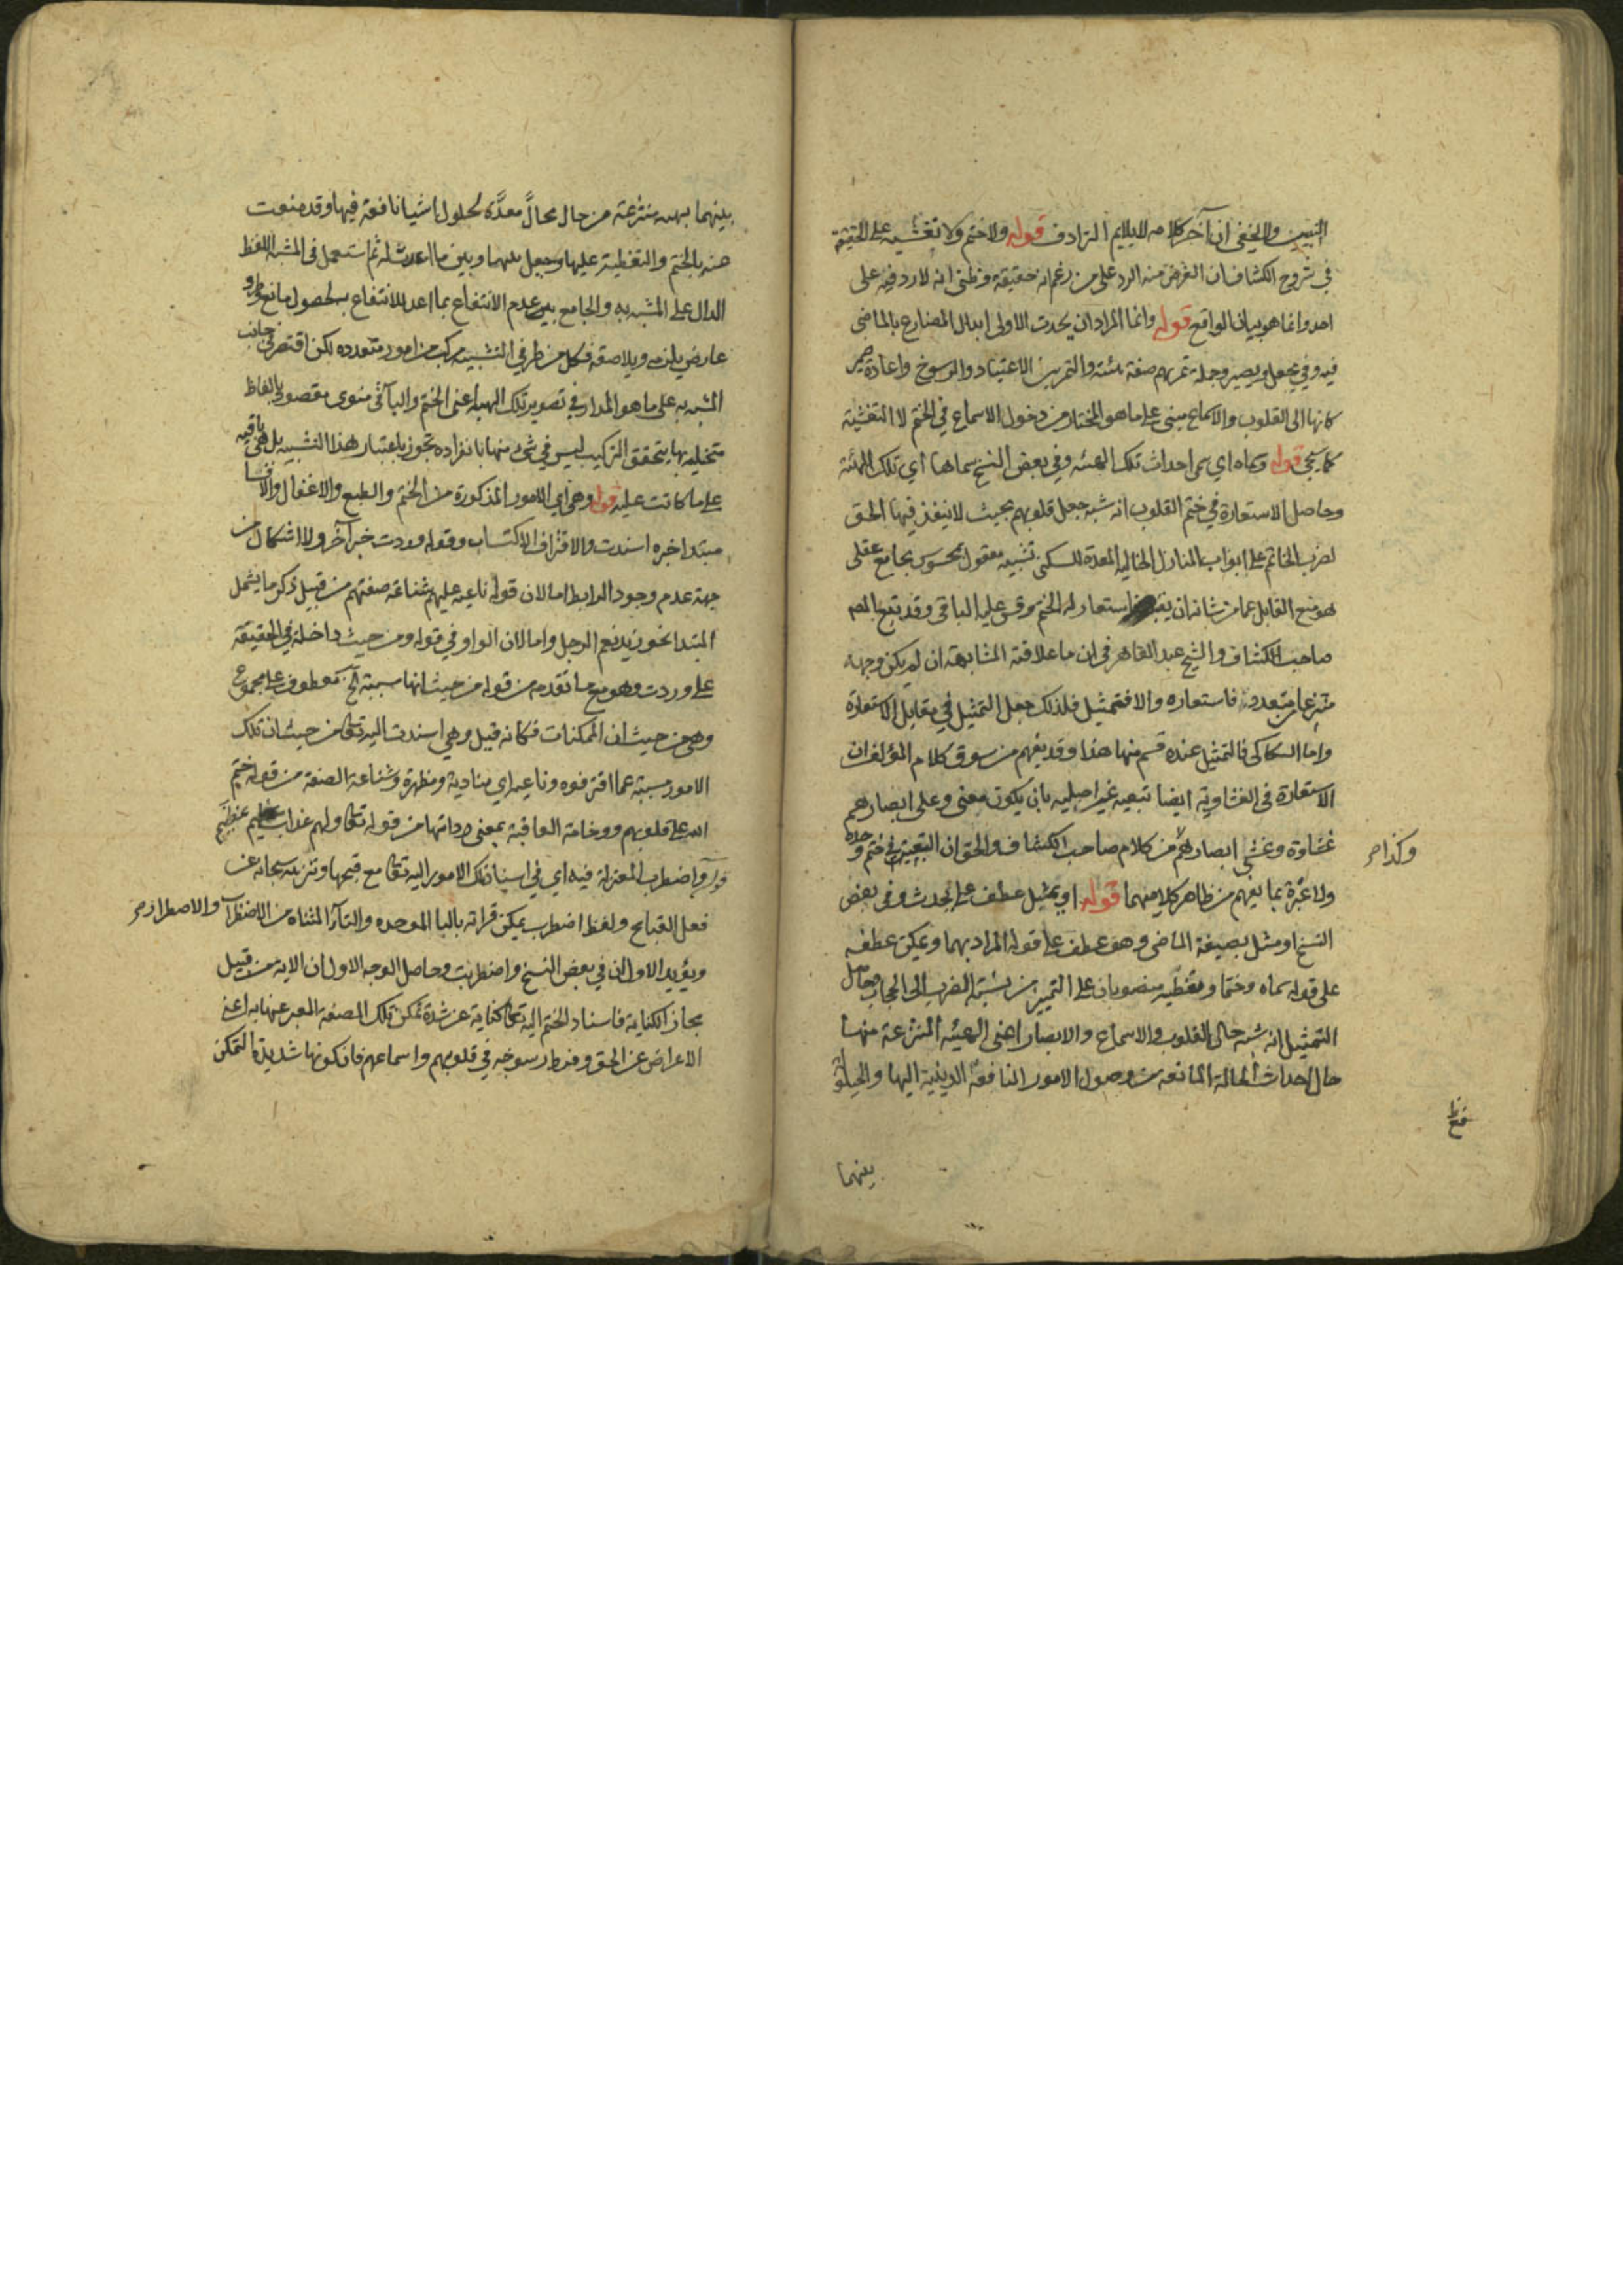 التبيين ولا يخفى ان آخر كلامه لا يلايم الترادف قوله ولا ختم ولا تغشيه على الحقيقة
في شروح الكشاف ان الغرض منه الرد على من زعم انه حقيقة وظنى انه لا رد فيه على
احد وانما هو بيان الواقع قوله وانما المراد ان يحدث الاولى ابدال المضارع بالماضى
فيه وفي يجعل ويصير وجملة تمرنهم صفة هيئة والتمرين الاعتياد والرسوخ واعادة ضمير
كانها الى القلوب والاسماع مبنى على ما هو المختار من دخول الاسماع في الختم لا التغشية
كما سيجي قوله وسماه اي سمى احداث تلك الهيئة وفي بعض النسخ سماها اي تلك الهيئة
وحاصل الاستعارة في ختم القلوب انه شبه جعل قلوبهم بحيث لا ينفذ فيها الحق
لضرب الخاتم على ابواب المنازل الخالية المعدة للسكنى تشبيه معقول بمحسوس بجامع عقلى
هو منع القابل عما من شانه ان فاستعار له الختم وقس عليه الباقى وقد تبع المصـ
صاحب الكشاف والشيخ عبد القاهر في ان ما علاقته المشابهة ان لم يكن وجهه
منتزعا من متعدد فاستعاره والا فتمثيل فلذلك جعل التمثيل في مقابل الاستعارة
واما السكاكى فالتمثيل عنده قسم منها هذا وقد يفهم من سوق كلام المؤلف ان
الاستعارة في الغشاوة ايضا تبعيه غير اصليه بان يكون معنى وعلى ابصارهم
غشاوة وغشي ابصارهم من كلام صاحب الكشاف والحق ان التبعية في ختم وحده
وكذا صـ
ولا عبرة بما يفهم من ظاهر كلاميهما قوله او تمثيل عطف على يحدث وفي بعض
النسخ او مثل بصيغة الماضى وهو عطف على قوله المراد بهما ويمكن عطفه
على قوله سماه وختما وتغطيه منصوبان على التمييز من نسبة الضرب الى الحجاب وحاصل
التمثيل انه شبه حال القلوب والاسماع والابصار اعنى الهيئه المنتزعة منها
حال احداث الحالة المانعه من وصول الامور النافعة الدينية اليها والحيلولة
بينهما
بينهما بهيئة منتزعة من حال محالّ معدّة لحلول اشيا نافعة فيها وقد منعت
عنه بالختم والتغطية عليها وجعل بينهما وبين ما اعدت له ثم استعمل في المشبه اللفظ
الدال على المشبه به والجامع بين عدم الانتفاع بما اعد للانتفاع بحصول مانع طرو
عارض يلزمه ويلاصقه فكل من طرفي التشبيه مركب من امور متعدده لكن اقتصر في جانب
المشبه به على ما هو المدار في تصوير تلك الهيئة اعنى الختم والباقى منوى مقصود بالفاظ
متخيلة بها يتحقق التركيب ليس في شئ منها بانفراده تجوز باعتبار هذا التشبيه بل هى باقيه
على ما كانت عليه قوله وهى اي الامور المذكورة من الختم والطبع والاغفال والاقسا
مبتدا خبره اسندت والاقتراف الاكتساب وقوله وردت خبر آخر ولا اشكال من
جهة عدم وجود الرابط اما لان قوله ناعيه عليهم شناعة صفتهم من قبيل ذكر ما يشمل
المبتدا نحو زيد نعم الرجل واما لان الواو في قوله ومن حيث داخلة في الحقيقة
على وردت وهو مع ما تقدم من قوله من حيث انها مسببة الخ معطوف على مجموع
وهى من حيث ان الممكنات فكانه قيل وهي اسندت اليه تعالى من حيث ان تلك
الامور مسببة عما اقترفوه وناعيه اي منادية ومظهرة وشناعة الصفة من قوله ختم
الله على قلوبهم ووخامة العاقبة بمعنى رداتها من قوله تعالى ولهم عذاب عظيم
قوله واضطرب المعتزلة فيه اي في اسناد تلك الامور اليه تعالى مع قبحها وتنزيهه سبحانه عن
فعل القبايح ولفظ اضطرب يمكن قراته بالبا الموحده والتاء المثناة من الاضطراب والاضطرار صـ
ويؤيد الاول ان في بعض النسخ واضطربت وحاصل الوجه الاول ان الاية من قبيل
مجاز الكناية فاسناد الختم اليه تعالى كناية عن شدة تمكن تلك الصفة المعبر عنها به اعنى
الاعراض عن الحق وفرط رسوخه في قلوبهم واسماعهم فان كونها شديدة التمكن